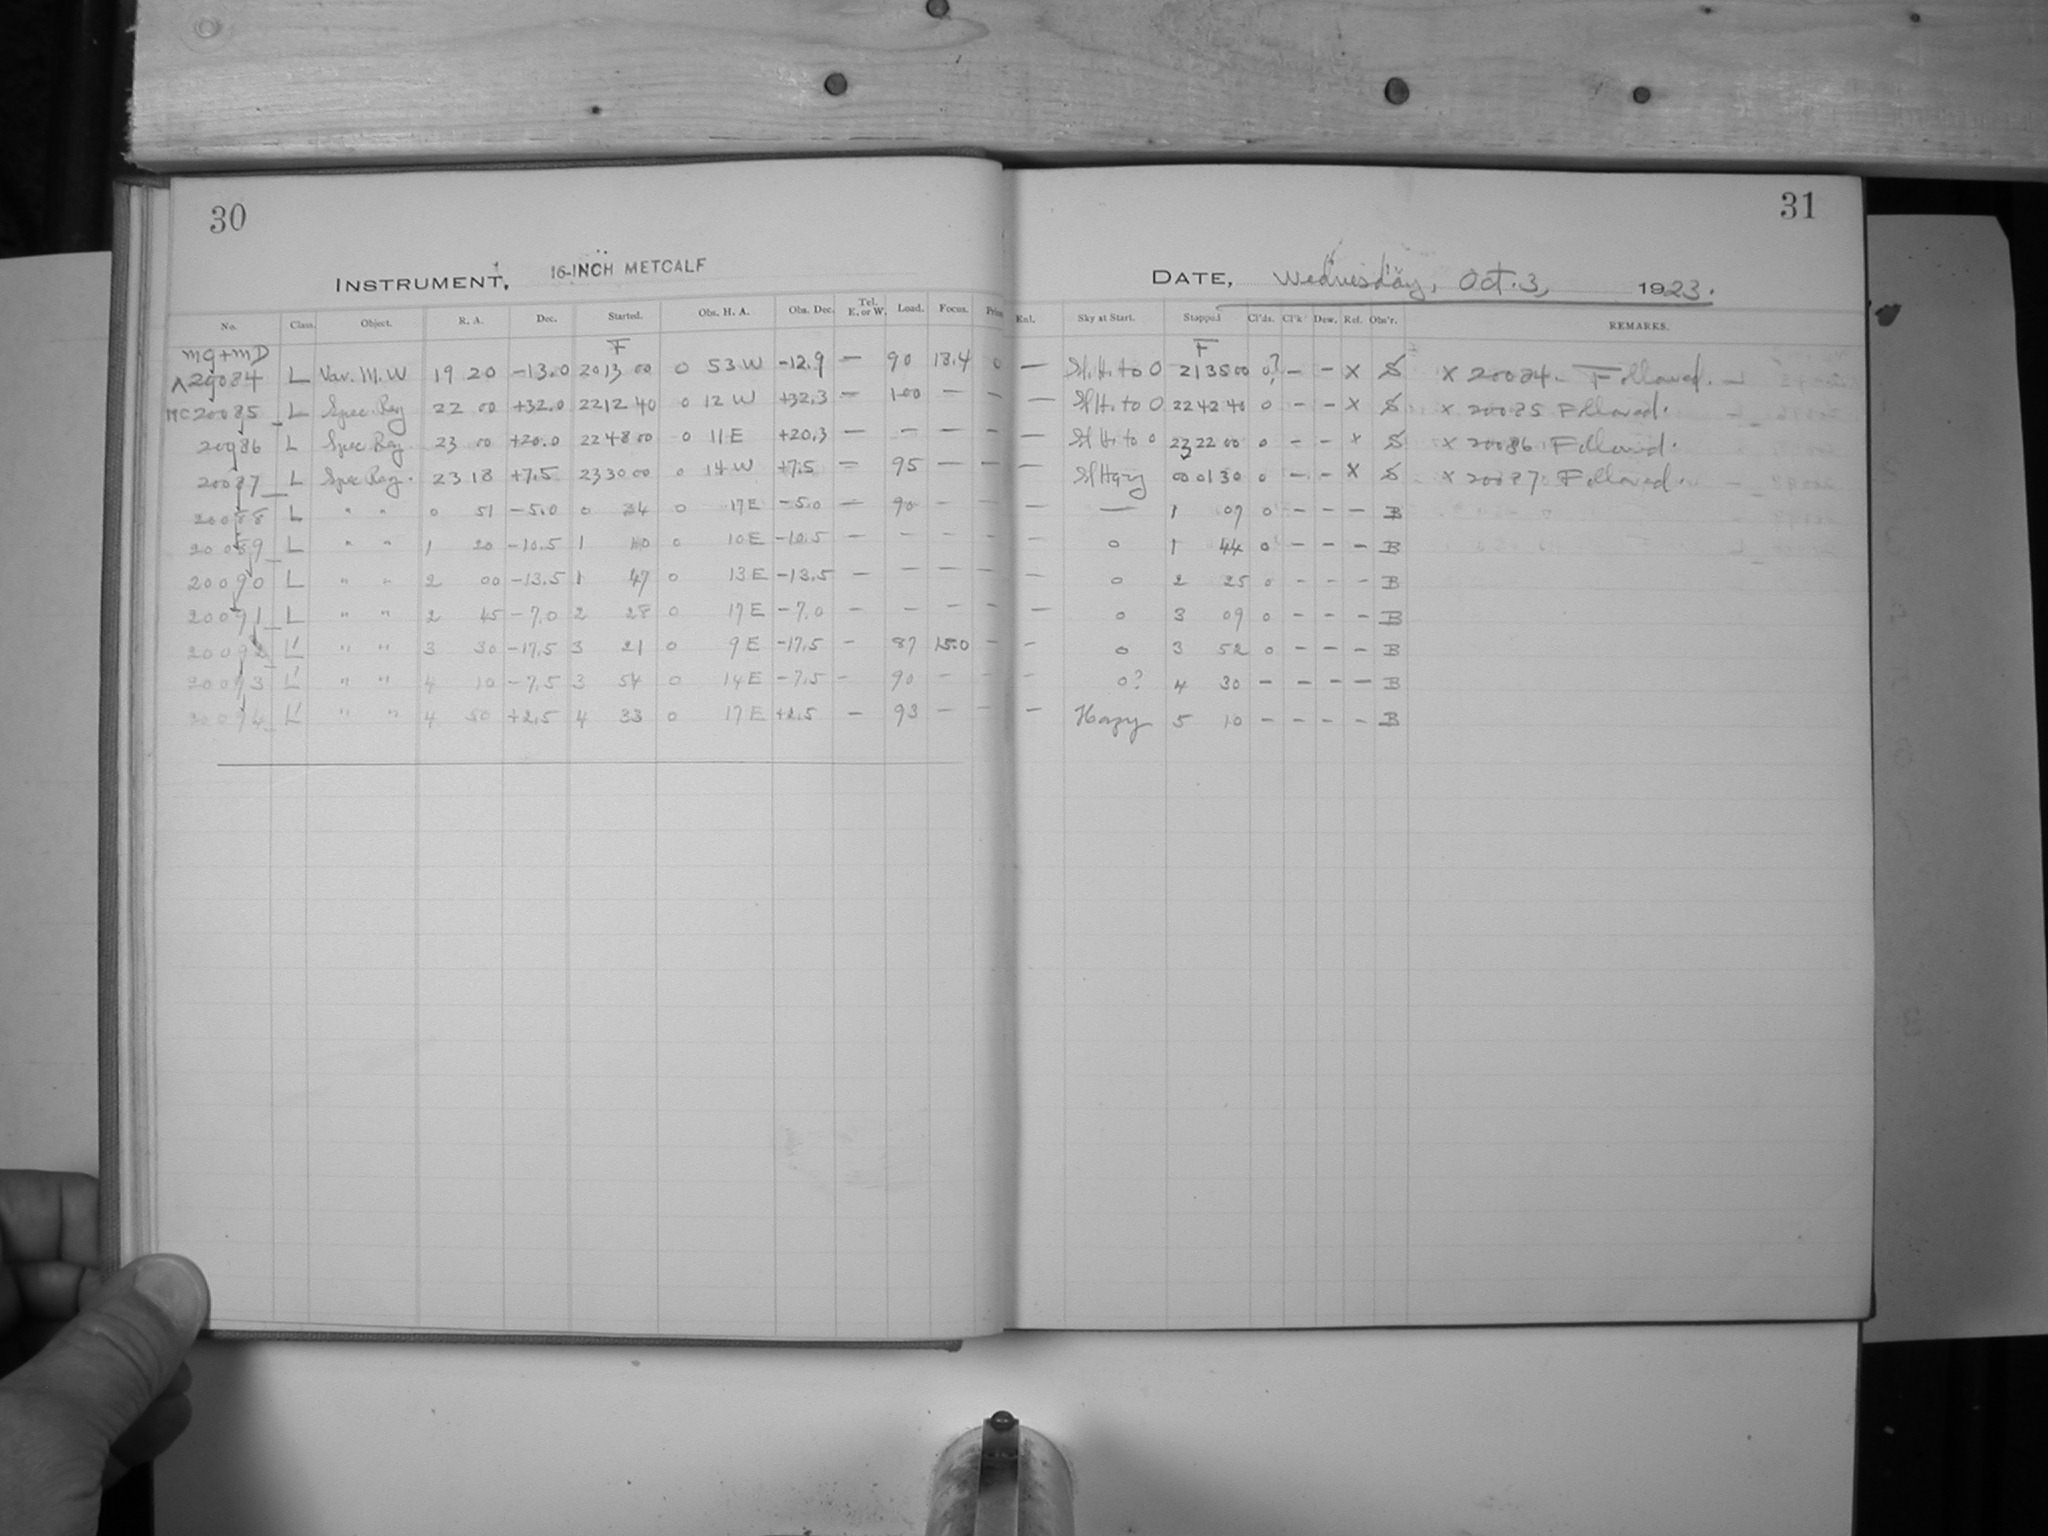 30
31
INSTRUMENT, 16-INCH METCALF
DATE, Wednesday, Oct. 3, 1923.
No. Class. Object. R. A. Dec. Started. Obs. H. A. Obs. Dec. Tel. E. or W. Load. Focus. Prism Enl. Sky at Start. Stopped Cl'ds. Cl'k Dew. Ref. Obs'r. REMARKS.
F F
20084 L Var. M.W 19 20 -13.0 20 13 00 0 53 W -12.9 — 90 13.4 0 — Sl. H. to 0 21 35 00 0? - - x S x 20084. Followed.
MC 20085 L Spec. Reg 22 00 +32.0 22 12 40 0 12 W +32.3 — 100 - - — Sl H. to 0 22 42 40 0 - - x S x 20085 Followed.
20086 L Spec Reg. 23 00 +20.0 22 48 00 0 11 E +20.3 — - - - — Sl H. to 0 23 22 00 0 - - x S x 20086 Followed.
20087 L Spec Reg. 23 18 +7.5 23 30 00 0 14 W +7.5 — 95 - - — Sl Hazy 00 01 30 0 - - x S x 20087 Followed.
20088 L " " 0 51 -5.0 0 34 0 17 E -5.0 - 90 - - - — 1 07 0 - - - B
20089 L " " 1 20 -10.5 1 10 0 10 E -10.5 - - - - - 0 1 44 0 - - - B
20090 L " " 2 00 -13.5 1 47 0 13 E -13.5 - - - - - 0 2 25 0 - - - B
20091 L " " 2 45 -7.0 2 28 0 17 E -7.0 - - - - - 0 3 09 0 - - - B
20092 L' " " 3 30 -17.5 3 21 0 9 E -17.5 - 87 15.0 - - 0 3 52 0 - - - B
20093 L' " " 4 10 -7.5 3 54 0 14 E -7.5 - 90 - - - 0? 4 30 - - - - B
20094 L' " " 4 50 +2.5 4 33 0 17 E +2.5 - 93 - - - Hazy 5 10 - - - - B